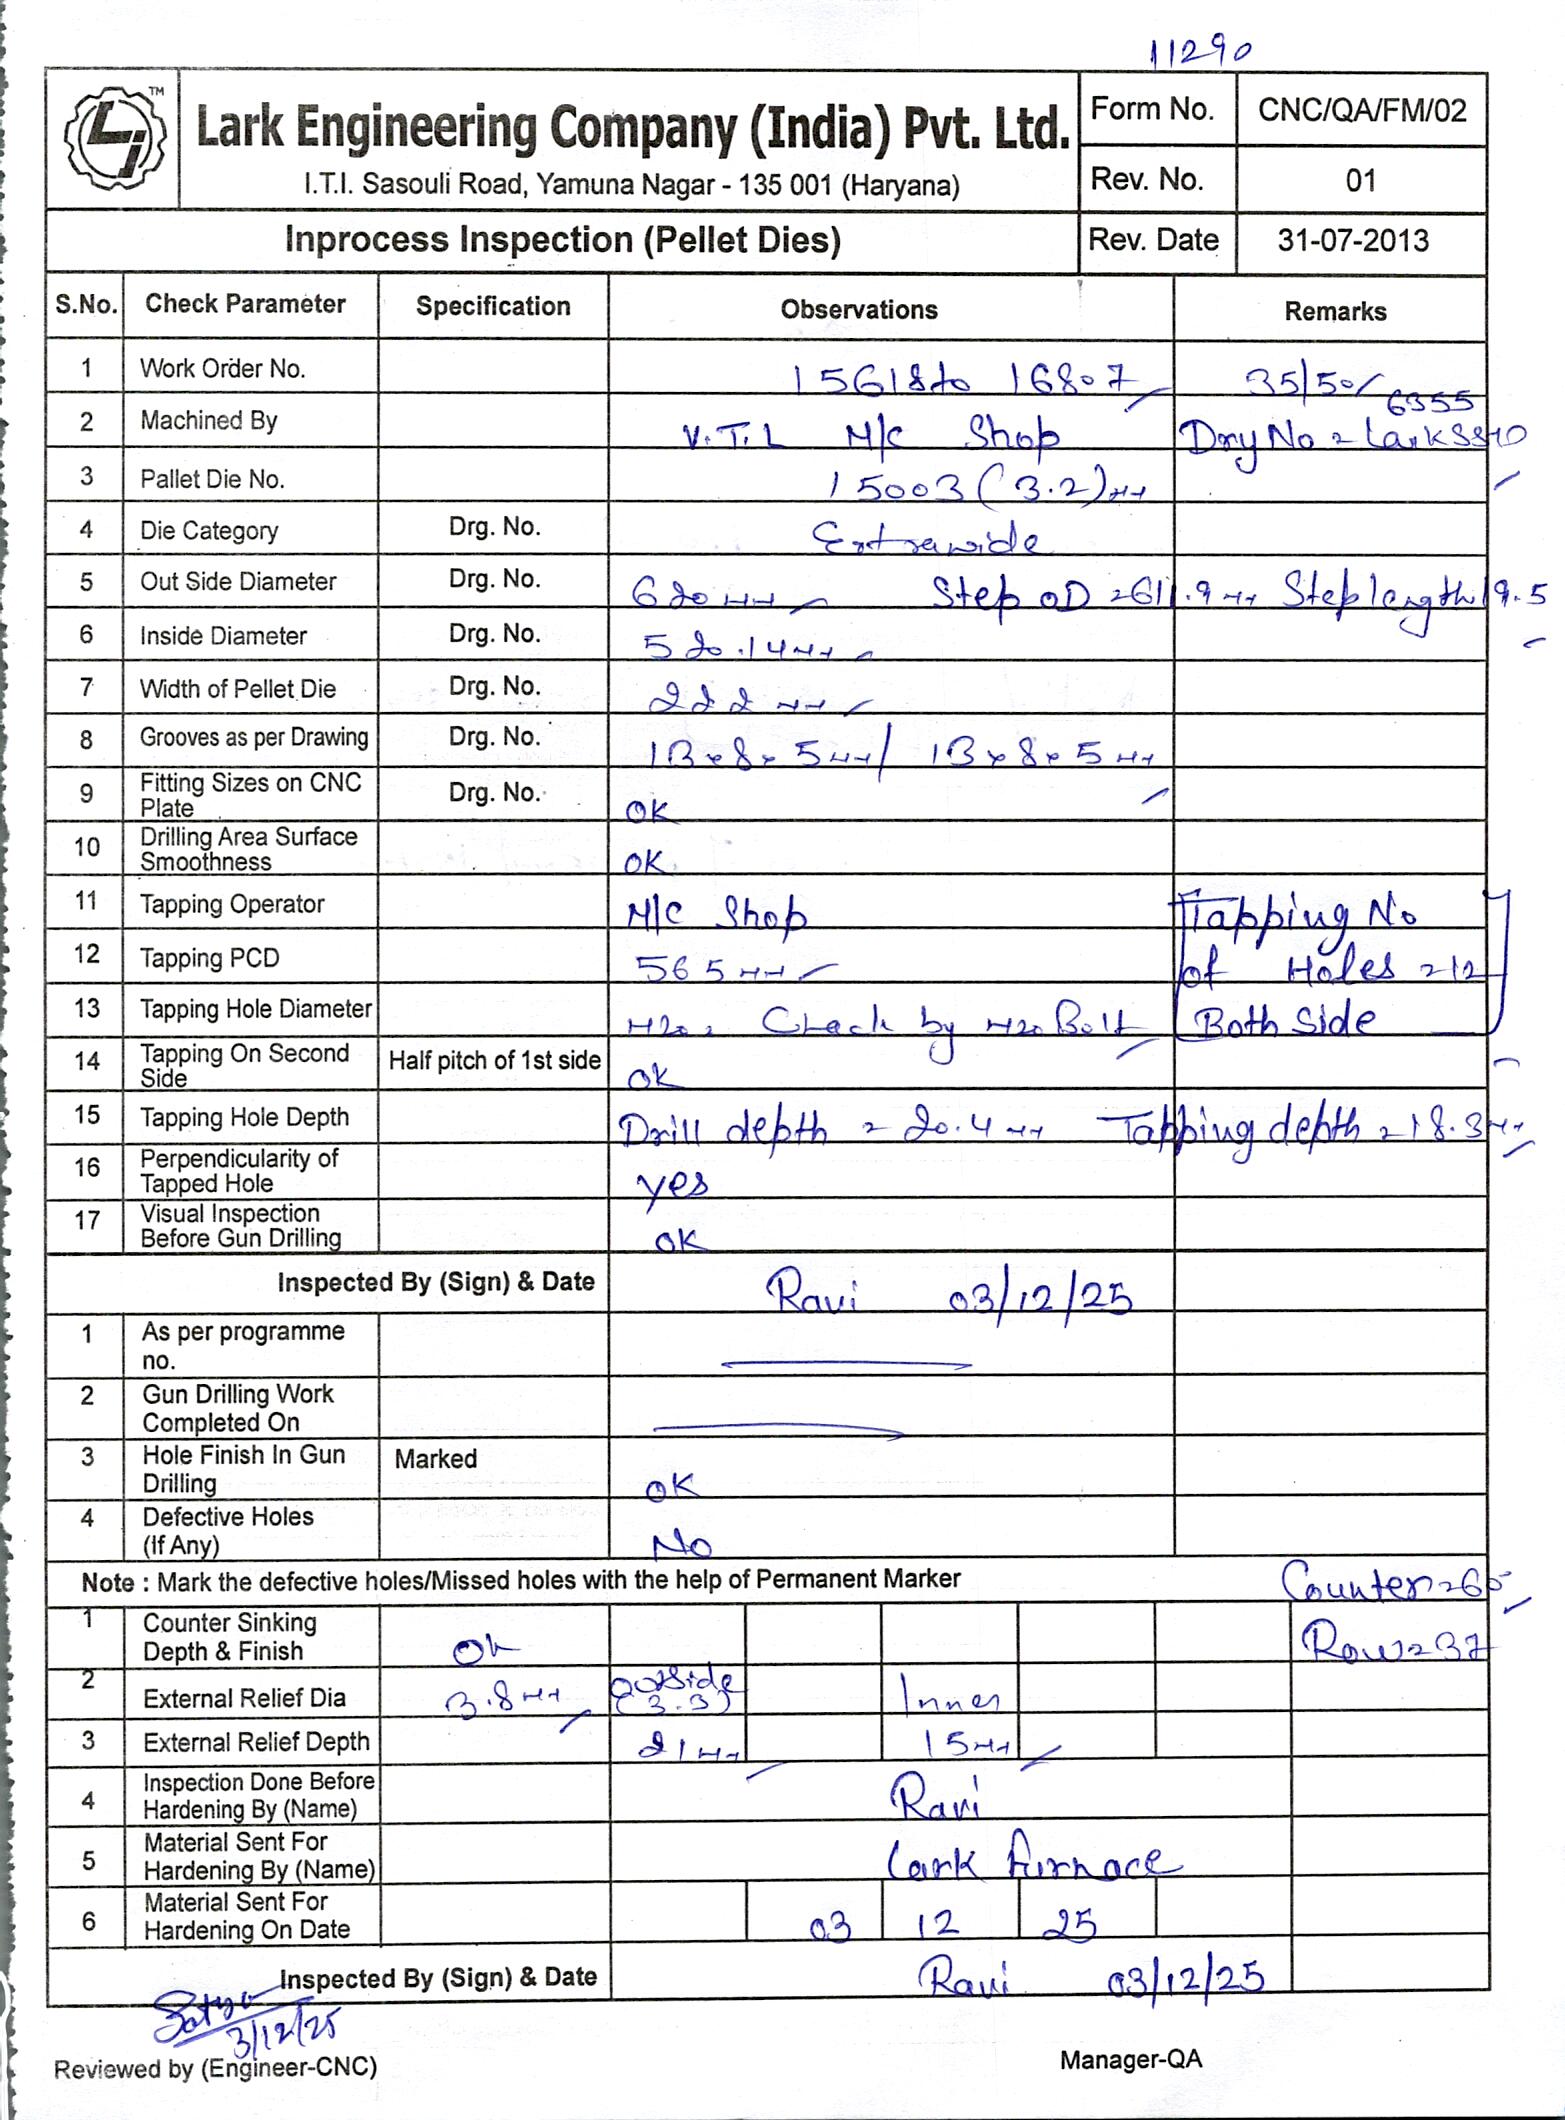 11290
TM
Lark Engineering Company (India) Pvt. Ltd.
I.T.I. Sasouli Road, Yamuna Nagar - 135 001 (Haryana)
Form No. CNC/QA/FM/02
Rev. No. 01
Inprocess Inspection (Pellet Dies) Rev. Date 31-07-2013
S.No. Check Parameter Specification Observations Remarks
1 Work Order No. 15618 to 16807 35/50
2 Machined By V.T.L M/C Shop 6355
Drg No = Lark
3 Pallet Die No. 15003 (3.2)mm
4 Die Category Drg. No. Extrawide
5 Out Side Diameter Drg. No. 620mm Step OD = 611.9mm Step length 19.5
6 Inside Diameter Drg. No. 520.14mm
7 Width of Pellet Die Drg. No. 222mm
8 Grooves as per Drawing Drg. No. 13x8x5mm/ 13x8x5mm
9 Fitting Sizes on CNC Plate Drg. No. OK
10 Drilling Area Surface Smoothness OK
11 Tapping Operator M/C Shop Tapping No
12 Tapping PCD 565mm of Holes = 12
13 Tapping Hole Diameter M20 = Check by M20 Bolt Both Side
14 Tapping On Second Side Half pitch of 1st side OK
15 Tapping Hole Depth Drill depth = 20.4mm Tapping depth = 18.3mm
16 Perpendicularity of Tapped Hole yes
17 Visual Inspection Before Gun Drilling OK
Inspected By (Sign) & Date Ravi 03/12/25
1 As per programme no.
2 Gun Drilling Work Completed On
3 Hole Finish In Gun Drilling Marked OK
4 Defective Holes (If Any) No
Note : Mark the defective holes/Missed holes with the help of Permanent Marker Counter = 60
1 Counter Sinking Depth & Finish Ok Row = 37
2 External Relief Dia 3.8mm outside (3.3) Inner
3 External Relief Depth 21mm 15mm
4 Inspection Done Before Hardening By (Name) Ravi
5 Material Sent For Hardening By (Name) Lark Furnace
6 Material Sent For Hardening On Date 03 12 25
Inspected By (Sign) & Date Ravi 03/12/25
Satya
3/12/25
Reviewed by (Engineer-CNC) Manager-QA